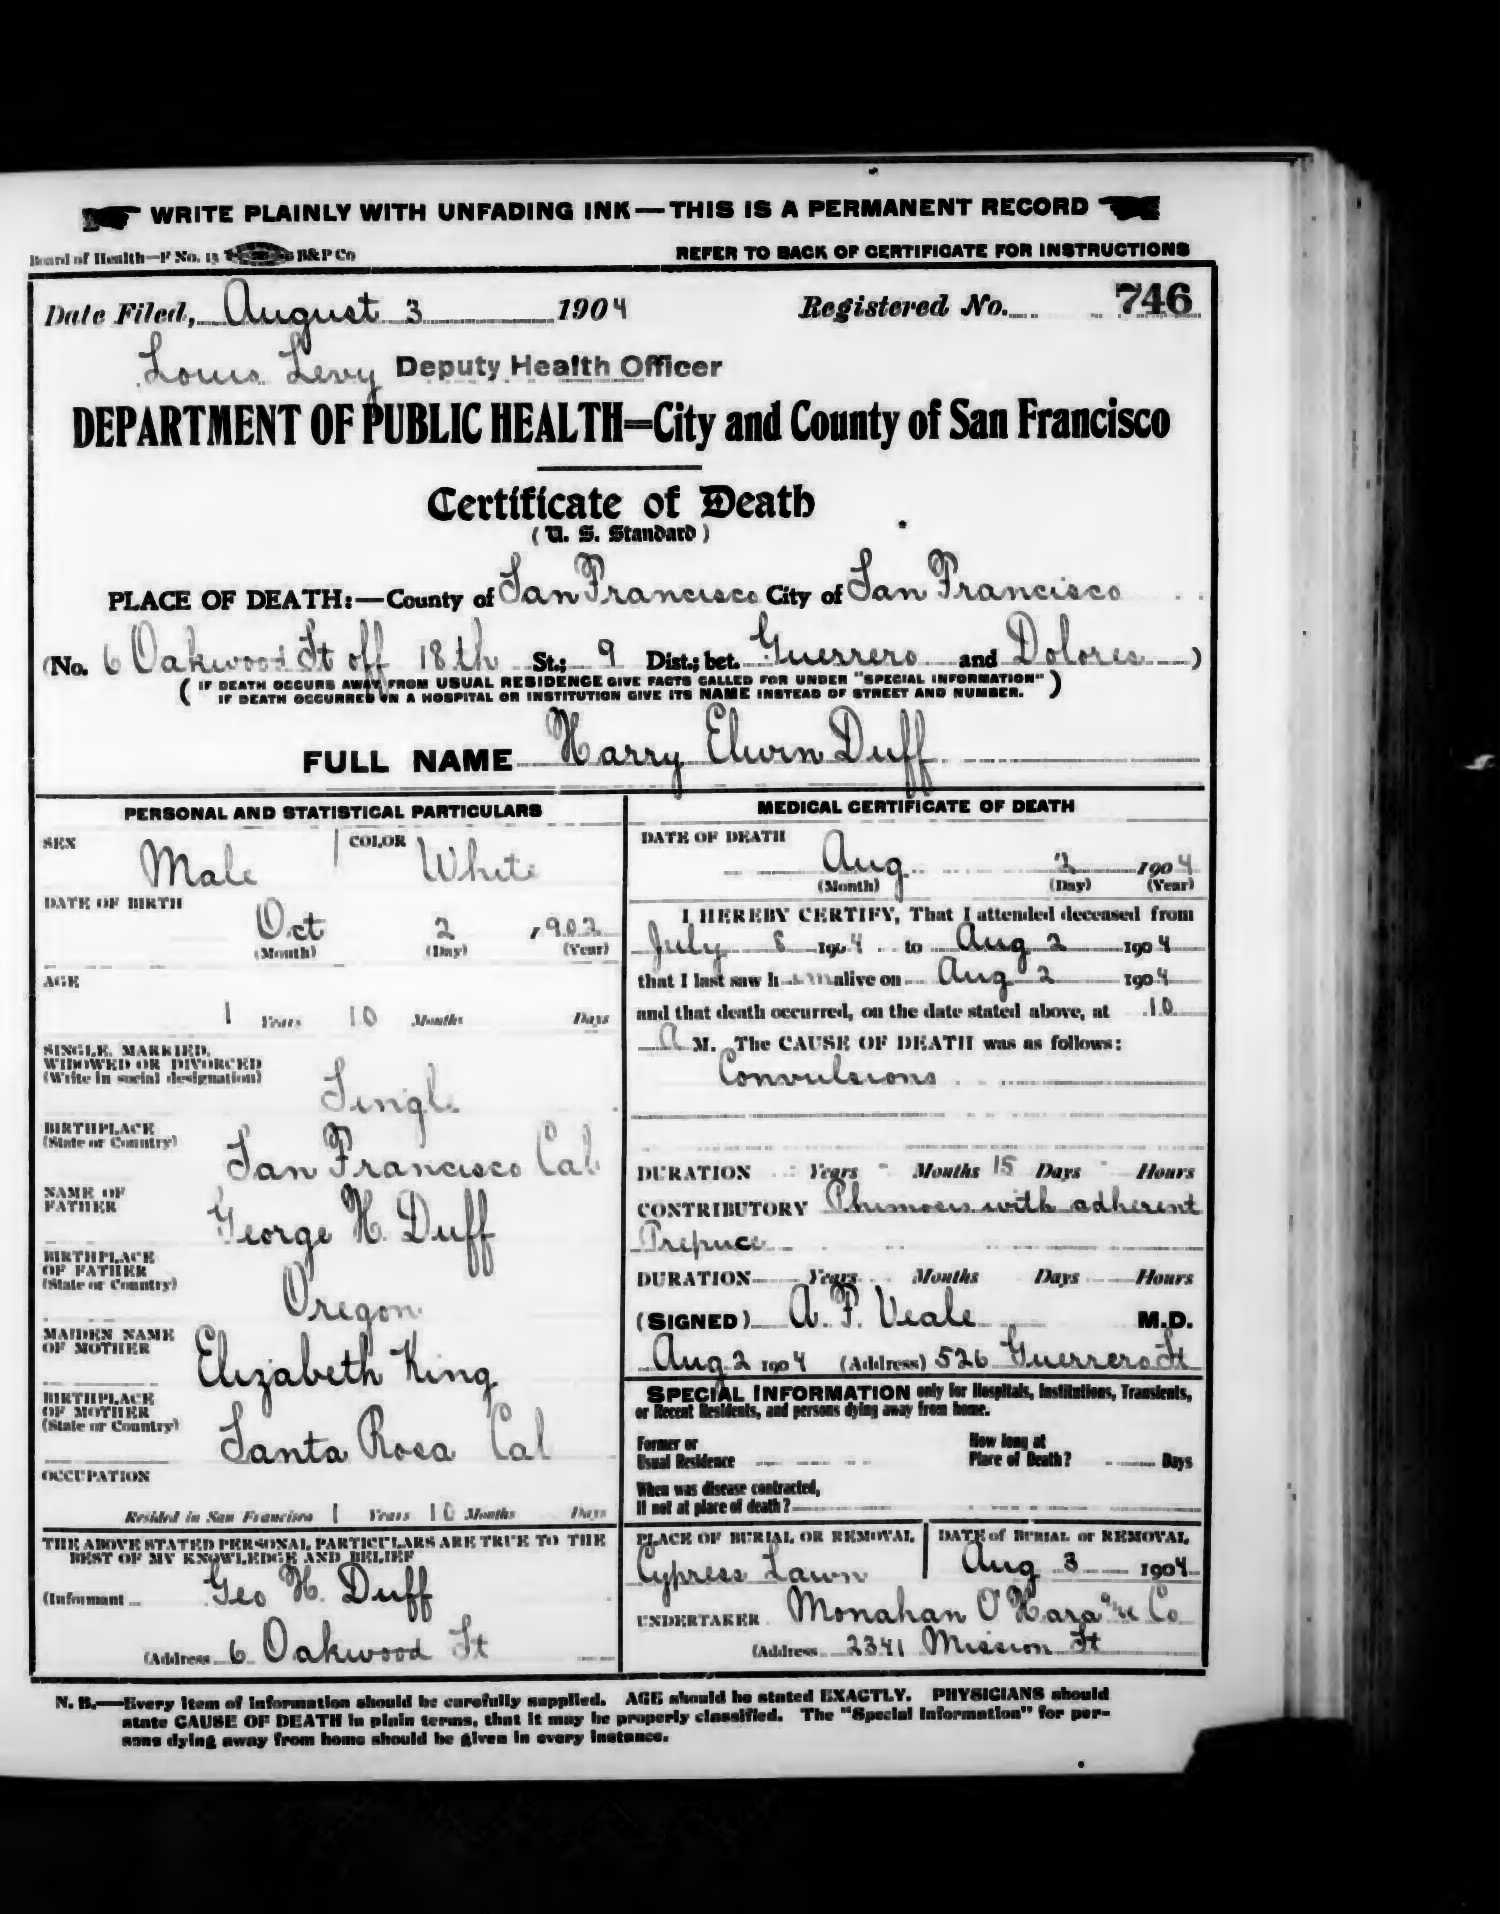 WRITE PLAINLY WITH UNFADING INK—THIS IS A PERMANENT RECORD
Board of Health—F No. 15 B&P Co REFER TO BACK OF CERTIFICATE FOR INSTRUCTIONS
Date Filed, August 3 1904 Registered No. 746
Louis Levy Deputy Health Officer
DEPARTMENT OF PUBLIC HEALTH=City and County of San Francisco
Certificate of Death
(U. S. Standard)
PLACE OF DEATH:—County of San Francisco City of San Francisco
(No. 6 Oakwood St off 18th St.; 9 Dist.; bet. Guerrero and Dolores )
( IF DEATH OCCURS AWAY FROM USUAL RESIDENCE GIVE FACTS CALLED FOR UNDER "SPECIAL INFORMATION"
IF DEATH OCCURRED IN A HOSPITAL OR INSTITUTION GIVE ITS NAME INSTEAD OF STREET AND NUMBER. )
FULL NAME Harry Elwin Duff
PERSONAL AND STATISTICAL PARTICULARS
SEX Male COLOR White
DATE OF BIRTH
Oct 2 1902
(Month) (Day) (Year)
AGE
1 Years 10 Months Days
SINGLE, MARRIED,
WIDOWED OR DIVORCED
(Write in social designation)
Single
BIRTHPLACE
(State or Country)
San Francisco Cal
NAME OF
FATHER
George H. Duff
BIRTHPLACE
OF FATHER
(State or Country)
Oregon
MAIDEN NAME
OF MOTHER
Elizabeth King
BIRTHPLACE
OF MOTHER
(State or Country)
Santa Rosa Cal
OCCUPATION
Resided in San Francisco 1 Years 10 Months Days
THE ABOVE STATED PERSONAL PARTICULARS ARE TRUE TO THE
BEST OF MY KNOWLEDGE AND BELIEF
(Informant Geo H. Duff
(Address 6 Oakwood St
MEDICAL CERTIFICATE OF DEATH
DATE OF DEATH
Aug 2 1904
(Month) (Day) (Year)
I HEREBY CERTIFY, That I attended deceased from
July 8 1904 to Aug 2 1904
that I last saw him alive on Aug 2 1904
and that death occurred, on the date stated above, at 10
A M. The CAUSE OF DEATH was as follows:
Convulsions
DURATION - Years - Months 15 Days - Hours
CONTRIBUTORY Phimosis with adherent
Prepuce
DURATION Years Months Days Hours
(SIGNED) A. P. Veale M.D.
Aug 2 1904 (Address) 526 Guerrero St
SPECIAL INFORMATION only for Hospitals, Institutions, Transients,
or Recent Residents, and persons dying away from home.
Former or
Usual Residence
How long at
Place of Death? Days
When was disease contracted,
If not at place of death?
PLACE OF BURIAL OR REMOVAL DATE of BURIAL or REMOVAL
Cypress Lawn Aug 3 1904
UNDERTAKER Monahan O'Hara & Co
(Address 2341 Mission St
N. B.—Every item of information should be carefully supplied. AGE should be stated EXACTLY. PHYSICIANS should
state CAUSE OF DEATH in plain terms, that it may be properly classified. The "Special Information" for per-
sons dying away from home should be given in every instance.